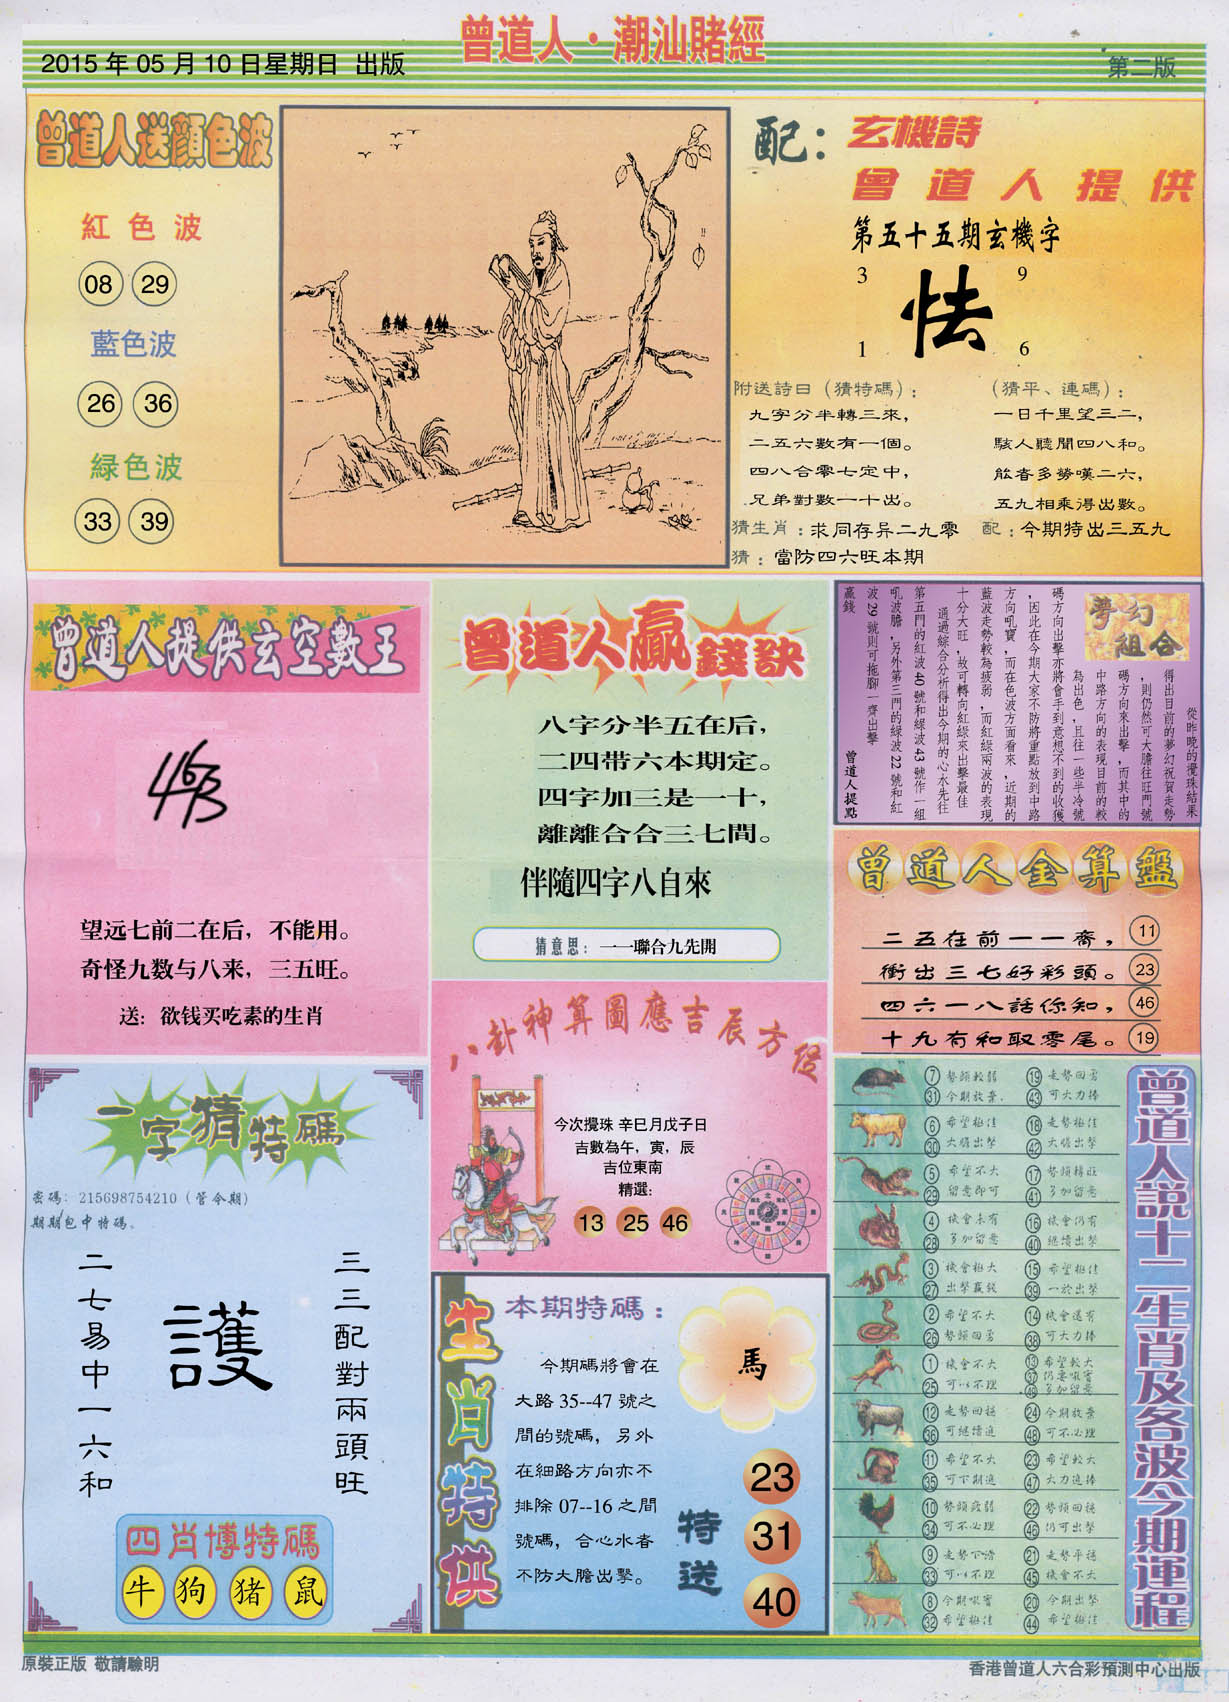 曾道人·潮汕賭經
2015 年 05 月 10 日星期日 出版
第二版
曾道人送顏色波
紅色波
08 29
藍色波
26 36
緑色波
33 39
配：
玄機詩
曾道人提供
第五十五期玄機字
3 9
怯
1 6
附送詩曰（猜特碼）：
九字分半轉三來，
二五六數有一個。
四八合零七定中，
兄弟對數一十出。
（猜平、連碼）：
一日千里望三二，
駭人聽聞四八和。
能者多勞嘆二六，
五九相乘得出數。
猜生肖：求同存异二九零
配：今期特出三五九
猜：當防四六旺本期
曾道人提供玄空數王
463
望远七前二在后，不能用。
奇怪九数与八来，三五旺。
送：欲钱买吃素的生肖
曾道人贏錢訣
八字分半五在后，
二四带六本期定。
四字加三是一十，
離離合合三七間。
伴隨四字八自來
猜意思：一一聯合九先開
夢幻組合
從昨晚的攪珠結果
得出目前的夢幻祝賀走勢
，則仍然可大膽往旺門號
碼方向來出擊，而其中的
中路方向的表現目前的較
為出色，且往一些半冷號
碼方向出擊亦將會手到意想不到的收獲
，因此在今期大家不防將重點放到中路
方向吼寶，而在色波方面看來，近期的
藍波走勢較為疲弱，而紅綠兩波的表現
十分大旺，故可轉向紅綠來出擊最佳
通過綜合分析得出今期的心水先往
第五門的紅波 40 號和綠波 43 號作一組
吼波膽，另外第三門的綠波 22 號和紅
波 29 號則可拖腳一齊出擊
贏錢
曾道人提點
曾道人金算盤
二五在前一一齊， 11
衝出三七好彩頭。 23
四六一八話你知， 46
十九有和取零尾。 19
八卦神算圖應吉辰方位
今次攪珠 辛巳月戊子日
吉數為午，寅，辰
吉位東南
精選：
13 25 46
一字猜特碼
密碼：215698754210（管令期）
期期包中特碼。
二七易中一六和
護
三三配對兩頭旺
四肖博特碼
牛 狗 猪 鼠
生肖特供
本期特碼：
今期碼將會在
大路 35--47 號之
間的號碼，另外
在細路方向亦不
排除 07--16 之間
號碼，合心水者
不防大膽出擊。
馬
特送
23
31
40
曾道人説十二生肖及各波今期運程
7 勢頭較弱 19 走勢回勇
31 今期放棄 43 可大力捧
6 希望極佳 18 走勢極佳
30 大膽出擊 42 大膽出擊
5 希望不大 17 勢頭轉旺
29 留意即可 41 多加留意
4 機會未有 16 機會仍有
28 多加留意 40 繼續出擊
3 機會極大 15 希望極佳
27 出擊贏錢 39 一於出擊
2 希望不大 14 機會還有
26 勢頭回勇 38 可大力捧
1 機會不大 13 希望較大
25 可以不理 37 仍要吼實
49 多加留意
12 走勢回穩 24 今期放棄
36 可繼續追 48 可不必理
11 希望不大 23 希望較大
35 可下期追 47 大力追捧
10 勢頭疲弱 22 勢頭回穩
34 可不必理 46 仍可出擊
9 走勢下滑 21 走勢平穩
33 可以不理 45 機會不大
8 今期吼實 20 今期出擊
32 希望極佳 44 希望極佳
原裝正版 敬請驗明
香港曾道人六合彩預測中心出版